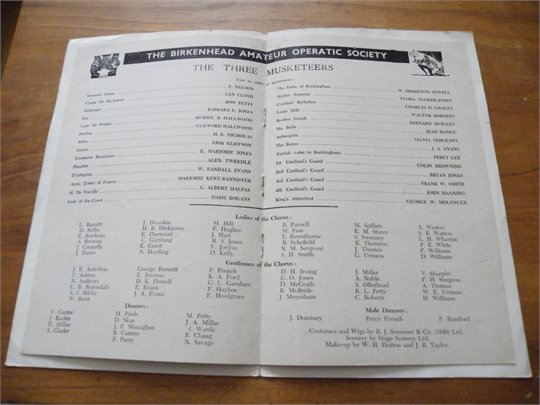 THE BIRKENHEAD AMATEUR OPERATIC SOCIETY
THE THREE MUSKETEERS
Cast in order of appearance:
Sergeant E. NELSON
Comte De Rochefort IAN LLOYD
RON PETTY
BARBARA E. JONES
Lady De Winter MURIEL R. HALLWOOD
Porthos CLIFFORD HALLWOOD
Athos H. E. NICHOLAS
Aramis ERIK ELIEFSON
Constance Bonacieux E. MARJORIE JONES
Planchet ALEX. TWEEDLE
D'Artagnan W. RANDALL EVANS
Anne, Queen of France MARJORIE KENT-BANNISTER
M. De Treville C. ALBERT MALPAS
Lady of the Court DAISY ROGANS
The Duke of Buckingham W. SHERSTON SEWELL
FLORA TUCKER-JONES
Cardinal Richelieu CHARLES D. GRACEY
Louis XIII WALTER ROBERTS
Brother Joseph BERNARD QUIGLEY
JEAN DANCE
Aubergiste SYLVIA SERGEANT
The Bosun J. A. EVANS
Patrick (valet to Buckingham) PERCY LEE
1st Cardinal's Guard COLIN BROWNING
2nd Cardinal's Guard BRIAN JONES
3rd Cardinal's Guard FRANK W. SMITH
4th Cardinal's Guard JOHN MANNING
King's Attendant GEORGE W. MOLYNEUX
Ladies of the Chorus:
L. Barrett J. Dearden M. Hill B. Parnell M. Spillets A. Weston
D. Bolin H. B. Dickinson P. Hughes M. Fars E. M. Storey S. B. Watson
E. Bordessa E. Darwood J. Hart T. Rawsthorne S. Sweeney L. H. Wharton
S. Browne C. Garstang B. S. Jones B. Schofield E. Thornton F. White
J. Connolly E. Guest V. Jordan N. M. Sergeant J. Thomas G. E. Williams
J. Dance N. Harding D. Kelly S. H. Smith G. Urmson D. Williams
Gentlemen of the Chorus:
J. E. Astrebus George Burnett P. French D. H. Irving J. Miller V. Sharples
F. Ashton E. Browne K. A. Ford E. O. Jones A. Noble F. H. Simpson
N. Andrews D. K. Dowell G. L. Garnham D. McGrath S. Ollerhead A. Thomas
C. B. Barnsdale E. Evans F. Haydon R. McBride R. L. Petty W. E. Urmson
S. C. Bibby J. A. Evans E. Houlgrave J. Moynehan C. Roberts H. Williams
W. Bent
Dancers:
V. Carter M. Poole M. Petty
J. Keeler D. Skae J. A. Millar
E. Miller J. P. Monaghan J. Warde
L. Clarke B. Cartier B. Chung
P. Parry N. Savage
Male Dancers:
J. Dempsey Percy French P. Bamford
Costumes and Wigs by B. J. Simmons & Co. (1840) Ltd.
Scenery by Stage Scenery Ltd.
Make-up by W. H. Hutton and J. R. Taylor.